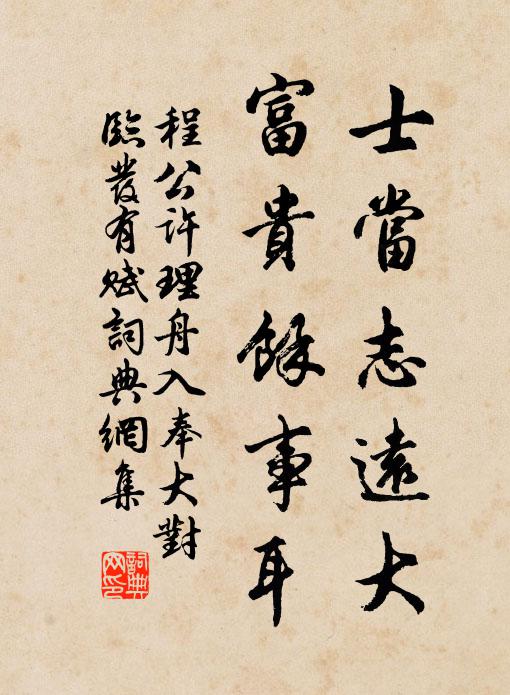 士當志遠大
富貴餘事耳
程公許理舟入奉大對
臨發有賦詞典網集
詞典
网印